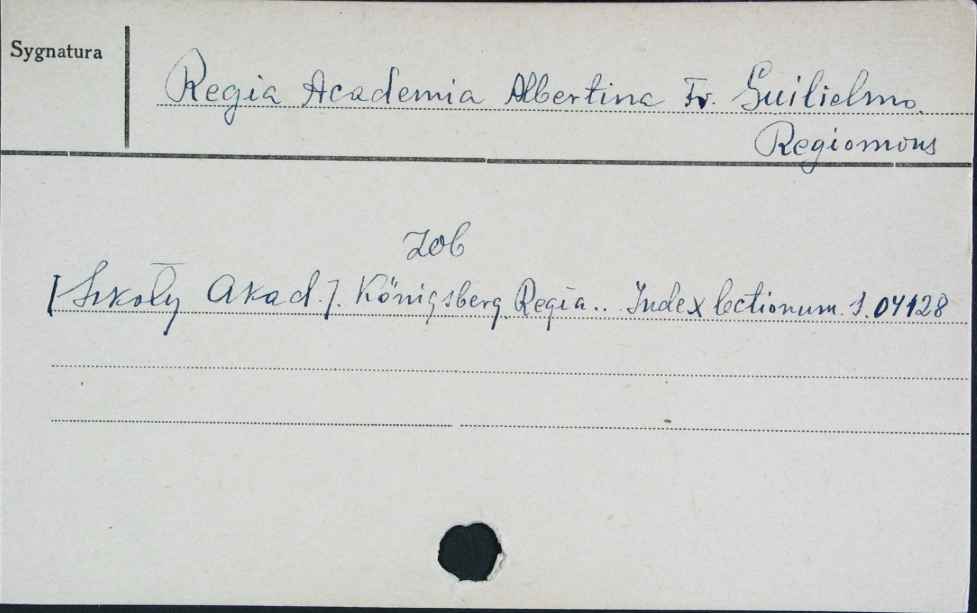 Sygnatura
Regia Academia Albertina Fr. Guilielmo
Regiomons
zob
[Szkoły Akad.]. Königsberg Regia.. Index lectionum. S. 04128